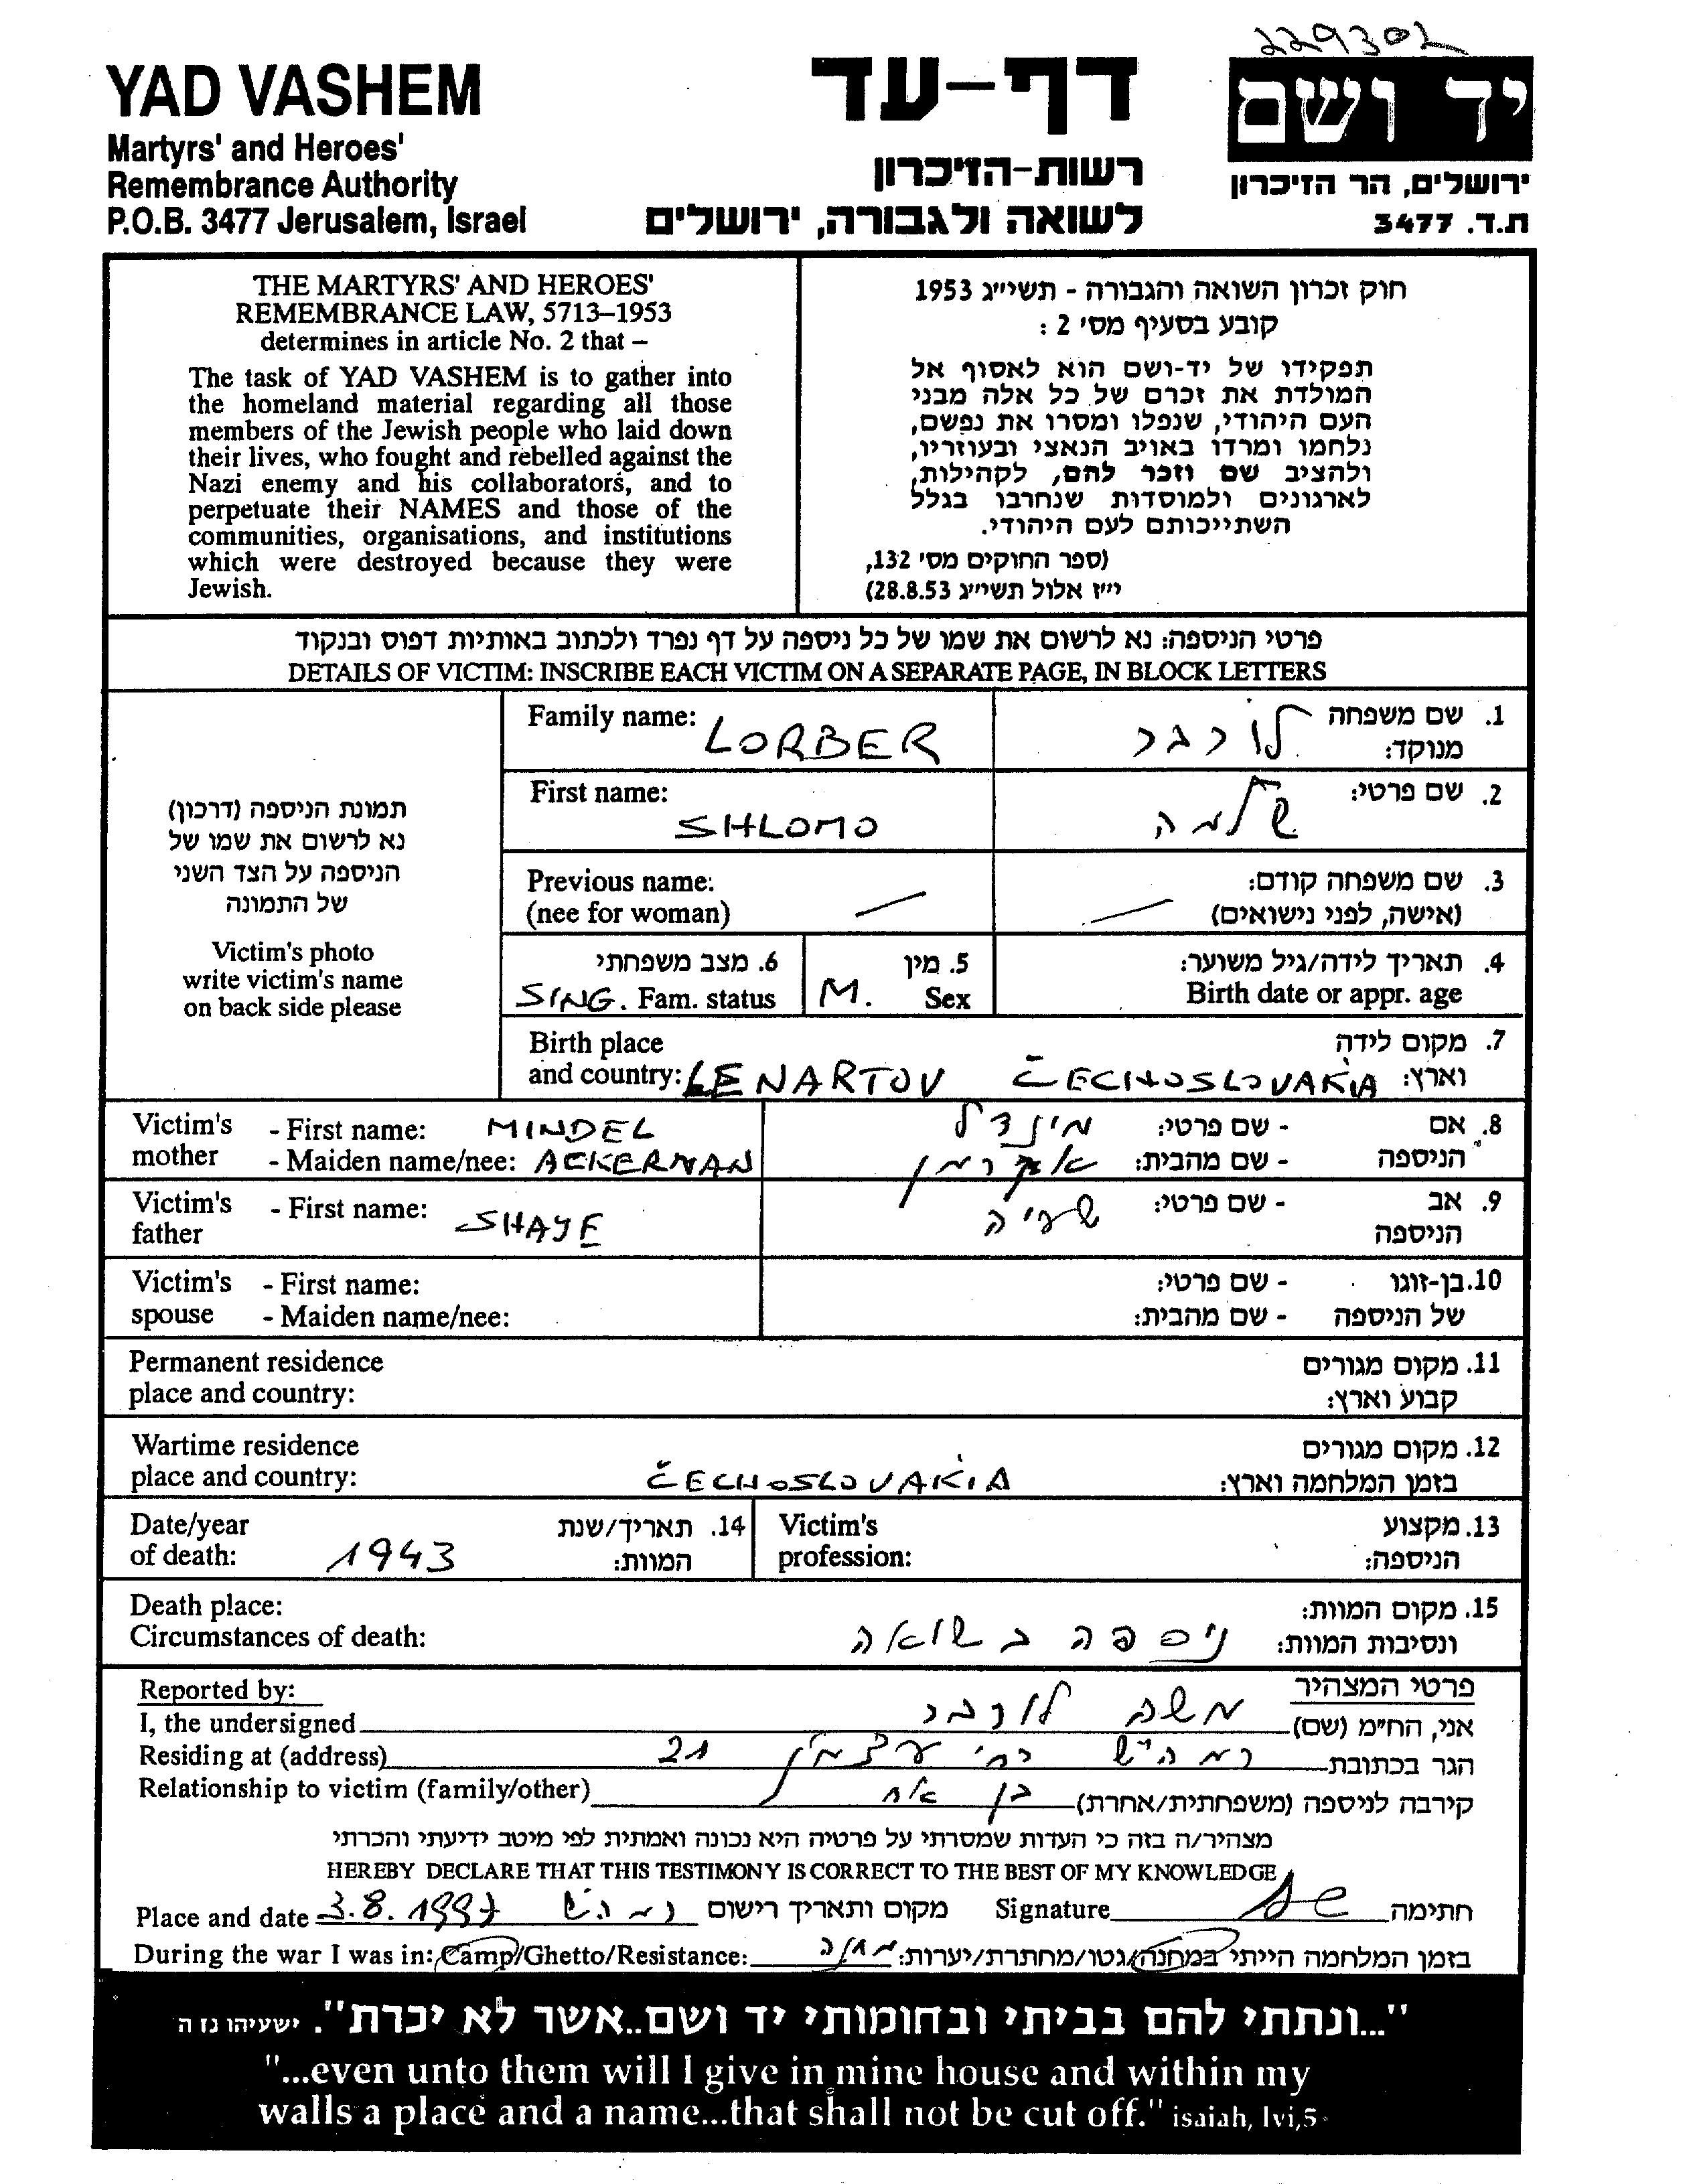 229302
YAD VASHEM
Martyrs' and Heroes'
Remembrance Authority
P.O.B. 3477 Jerusalem, Israel
דף-עד
רשות-הזיכרון
לשואה ולגבורה, ירושלים
יד ושם
ירושלים, הר הזיכרון
ת.ד. 3477
THE MARTYRS' AND HEROES'
REMEMBRANCE LAW, 5713–1953
determines in article No. 2 that –
The task of YAD VASHEM is to gather into
the homeland material regarding all those
members of the Jewish people who laid down
their lives, who fought and rebelled against the
Nazi enemy and his collaborators, and to
perpetuate their NAMES and those of the
communities, organisations, and institutions
which were destroyed because they were
Jewish.
חוק זכרון השואה והגבורה - תשי״ג 1953
קובע בסעיף מס׳ 2 :
תפקידו של יד-ושם הוא לאסוף אל
המולדת את זכרם של כל אלה מבני
העם היהודי, שנפלו ומסרו את נפשם,
נלחמו ומרדו באויב הנאצי ובעוזריו,
ולהציב שם וזכר להם, לקהילות,
לארגונים ולמוסדות שנחרבו בגלל
השתייכותם לעם היהודי.
(ספר החוקים מס׳ 132,
י״ז אלול תשי״ג 28.8.53)
פרטי הניספה: נא לרשום את שמו של כל ניספה על דף נפרד ולכתוב באותיות דפוס ובנקוד
DETAILS OF VICTIM: INSCRIBE EACH VICTIM ON A SEPARATE PAGE, IN BLOCK LETTERS
תמונת הניספה (דרכון)
נא לרשום את שמו של
הניספה על הצד השני
של התמונה
Victim's photo
write victim's name
on back side please
Family name: LORBER
1. שם משפחה מנוקד: לורבר
First name: SHLOMO
2. שם פרטי: שלמה
Previous name:
(nee for woman) —
3. שם משפחה קודם:
(אישה, לפני נישואים) —
6. מצב משפחתי
SING. Fam. status
5. מין
M. Sex
4. תאריך לידה/גיל משוער:
Birth date or appr. age
Birth place 7. מקום לידה
and country: LENARTOV ČECHOSLOVAKIA וארץ:
Victim's - First name: MINDEL
mother - Maiden name/nee: ACKERMAN
8. אם - שם פרטי: מינדל
הניספה - שם מהבית: אקרמן
Victim's - First name: SHAJE
father
9. אב - שם פרטי: שעיה
הניספה
Victim's - First name:
spouse - Maiden name/nee:
10. בן-זוגו - שם פרטי:
של הניספה - שם מהבית:
Permanent residence 11. מקום מגורים
place and country: קבוע וארץ:
Wartime residence 12. מקום מגורים
place and country: ČECHOSLOVAKIA בזמן המלחמה וארץ:
Date/year 14. תאריך/שנת
of death: 1943 המוות:
Victim's 13. מקצוע
profession: הניספה:
Death place: 15. מקום המוות:
Circumstances of death: ניספה בשואה ונסיבות המוות:
Reported by: פרטי המצהיר
I, the undersigned משה לורבר אני, הח״מ (שם)
Residing at (address) רמה״ש רח׳ 21 הגר בכתובת
Relationship to victim (family/other) בן אח קירבה לניספה (משפחתית/אחרת)
מצהיר/ה בזה כי העדות שמסרתי על פרטיה היא נכונה ואמתית לפי מיטב ידיעתי והכרתי
HEREBY DECLARE THAT THIS TESTIMONY IS CORRECT TO THE BEST OF MY KNOWLEDGE
Place and date 3.8.1997 רמה״ש מקום ותאריך רישום Signature חתימה
During the war I was in: Camp/Ghetto/Resistance: מחנה בזמן המלחמה הייתי במחנה/גטו/מחתרת/יערות:
"...ונתתי להם בביתי ובחומותי יד ושם..אשר לא יכרת". ישעיהו נז ה
"...even unto them will I give in mine house and within my
walls a place and a name...that shall not be cut off." isaiah, lvi,5